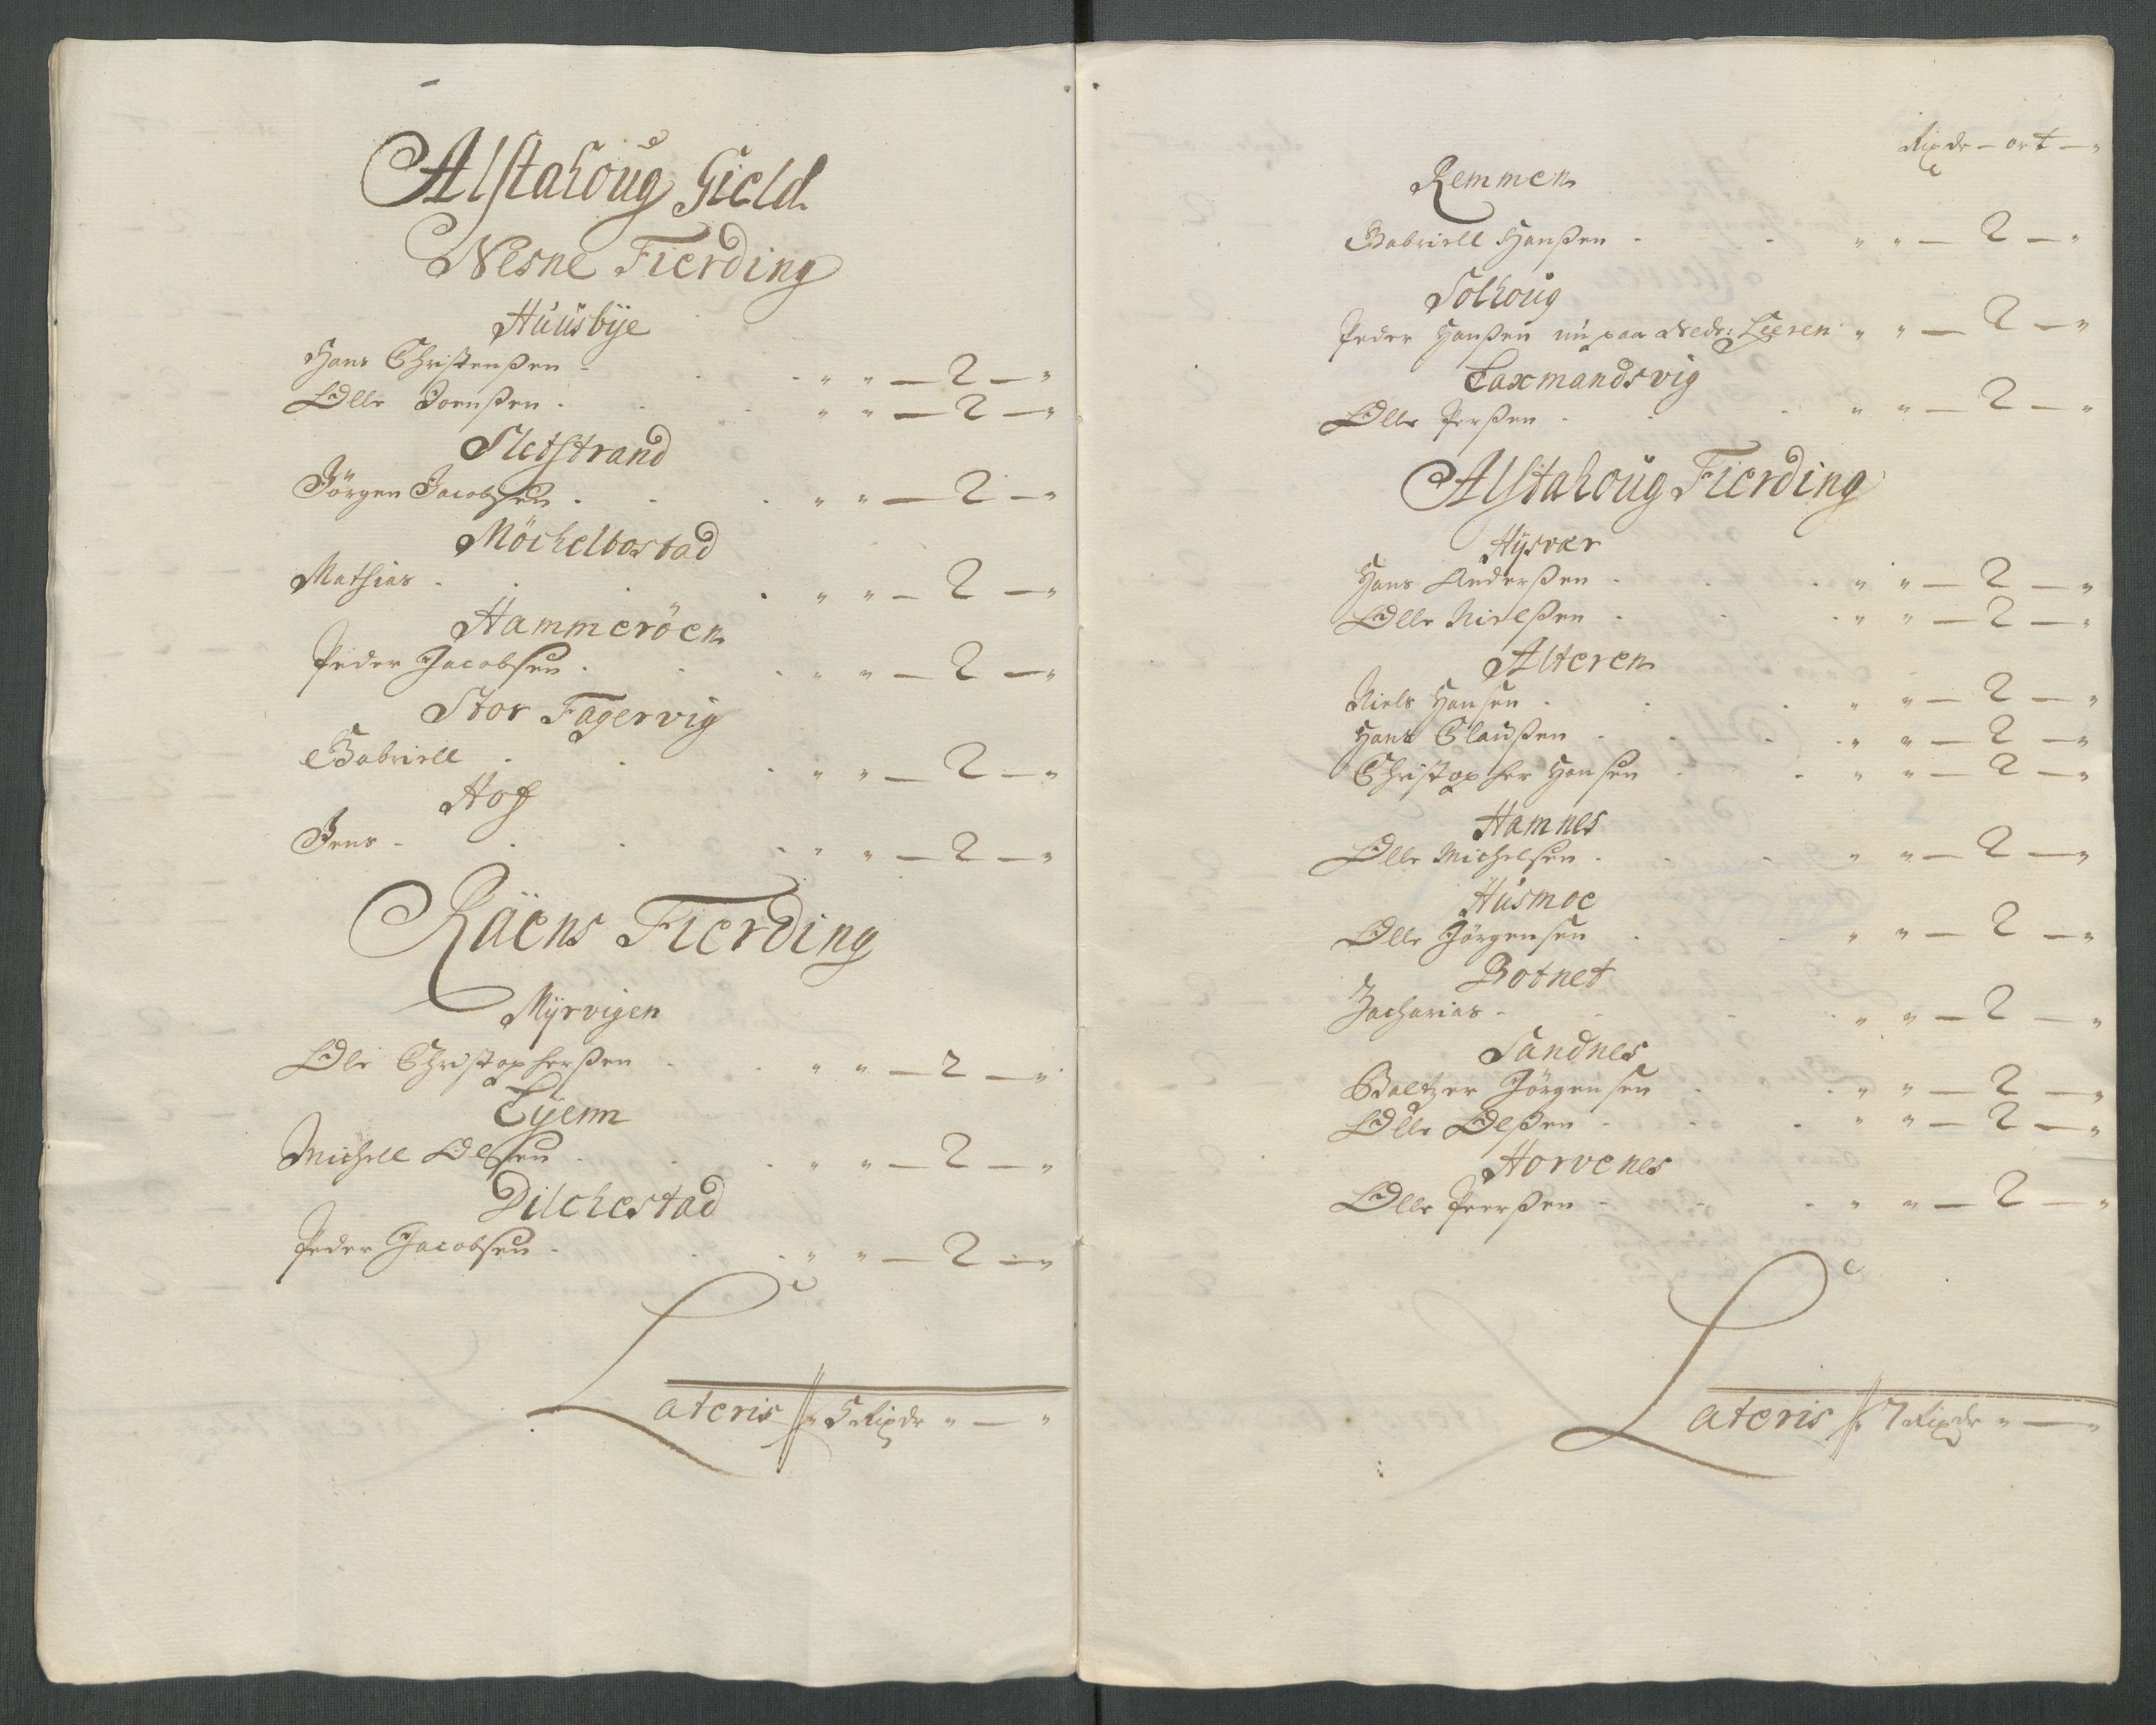 Alstahoug Gield
Nesne Fierding
Huusbÿe
Hans Christenßen - " " — 2 — "
Olle Joenßen - " " — 2 — "
Sletstrand
Jörgen Jacobsen - " " — 2 — "
Möchelbostad
Mathias - " " — 2 — "
Hammeröen
Peder Jacobsen - " " — 2 — "
Stor Fagervig
Gabriell - " " — 2 — "
Hoff
Jens - " " — 2 — "
Räens Fierding
Mÿrvigen
Ole Christopherßen - " " — 2 — "
Eÿenn
Michell Olsen - " " — 2 — "
Dilchestad
Peder Jacobsen - " " — 2 — "
Lateris " 5 Rixdr " — "
Rixdr — ort — "
Remmen
Gabriell Hanßen - " " — 2 — "
Solhoug
Peder Hanßen nu paa Nedr: Leren " " — 2 — "
Laxmandsvig
Olle Perßen - " " — 2 — "
Alstahoug Fierding
Hÿsvær
Hans Anderßen - " " — 2 — "
Olle Nielßen - " " — 2 — "
Alteren
Niels Hansen - " " — 2 — "
Hans Claußen - " " — 2 — "
Christopher Hansen - " " — 2 — "
Hamnes
Olle Michelsen - " " — 2 — "
Husmoe
Olle Jörgensen - " " — 2 — "
Botnet
Zacharias - " " — 2 — "
Sandnes
Baltzer Jörgensen - " " — 2 — "
Olle Olßen - " " — 2 — "
Horvenes
Olle Peerßen - " " — 2 — "
Lateris " 7 Rixdr " — "